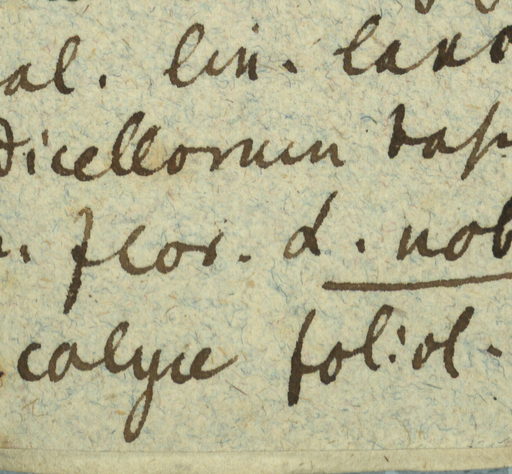 al. lin. lano
dicellorum basi
. flor. d. nob
calyce foliol.